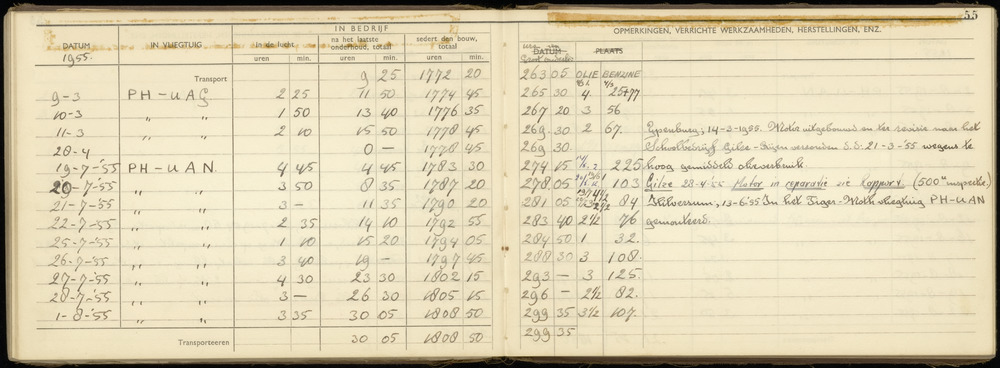 55
IN BEDRIJF
DATUM IN VLIEGTUIG In de lucht na het laatste onderhoud, totaal sedert den bouw, totaal
1955. uren min. uren min. uren min.
Transport 9 25 1772 20
9-3 PH-UAG 2 25 11 50 1774 45
10-3 " " 1 50 13 40 1776 35
11-3 " " 2 10 15 50 1778 45
28-4 0 — 1778 45
19-7-'55 PH-UAN 4 45 4 45 1783 30
20-7-'55 " " 3 50 8 35 1787 20
21-7-'55 " " 3 — 11 35 1790 20
22-7-'55 " " 2 35 14 10 1792 55
25-7-'55 " " 1 10 15 20 1794 05
26-7-'55 " " 3 40 19 — 1797 45
27-7-'55 " " 4 30 23 30 1802 15
28-7-'55 " " 3 — 26 30 1805 15
1-8-'55 " " 3 35 30 05 1808 50
Transporteeren 30 05 1808 50
OPMERKINGEN, VERRICHTE WERKZAAMHEDEN, HERSTELLINGEN, ENZ.
DATUM PLAATS
263 05 OLIE BENZINE
265 30 4 25+77
267 20 3 56
269 30 2 67. Ypenburg, 14-3-1955. Motor uitgebouwd en ter revisie naar het
269 30 Schoolbedrijf Gilze-Rijen verzonden d.d. 21-3-'55 wegens te
274 15 225 hoog gemiddeld olieverbruik.
278 05 103 Gilze 28-4-55 Motor in reparatie zie Rapport. (500 u inspectie.)
281 05 2½ 84 Hilversum, 13-6-'55 In het Tiger-Moth vliegtuig PH-UAN
283 40 2½ 76 gemonteerd.
284 50 1 32.
288 30 3 108.
293 — 3 125.
296 — 2½ 82.
299 35 3½ 107.
299 35